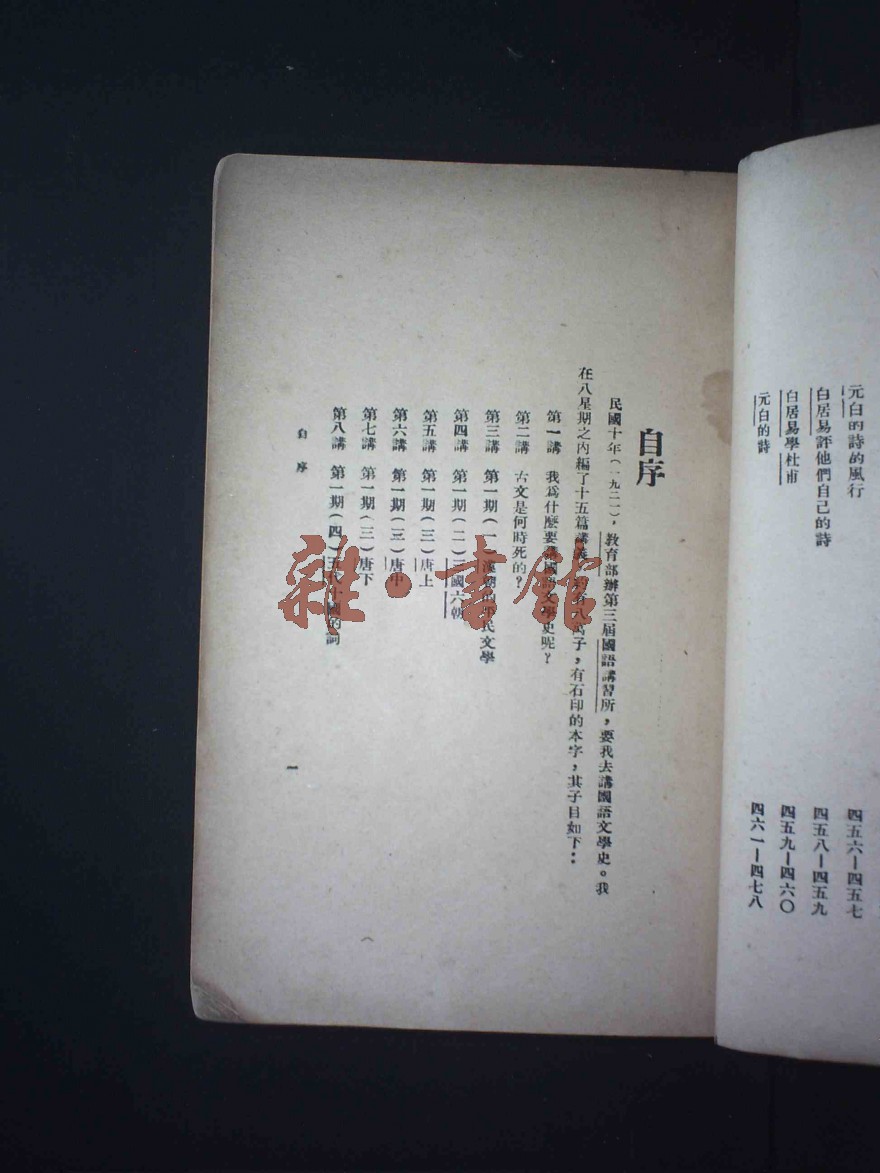 元白的詩的風行 四五六—四五七
白居易評他們自己的詩 四五八—四五九
白居易學杜甫 四五九—四六〇
元白的詩 四六一—四七八
自序
民國十年(一九二一)，教育部辦第三屆國語講習所，要我去講國語文學史。我
在八星期之內編了十五篇講義，約有八萬子，有石印的本字，其子目如下：
第一講 我爲什麼要講國語文學史呢？
第二講 古文是何時死的？
第三講 第一期(一)漢朝的平民文學
第四講 第一期(二)三國六朝
第五講 第一期(三)唐上
第六講 第一期(三)唐中
第七講 第一期(三)唐下
第八講 第一期(四)五代十國的詞
自序
一
雜·書館